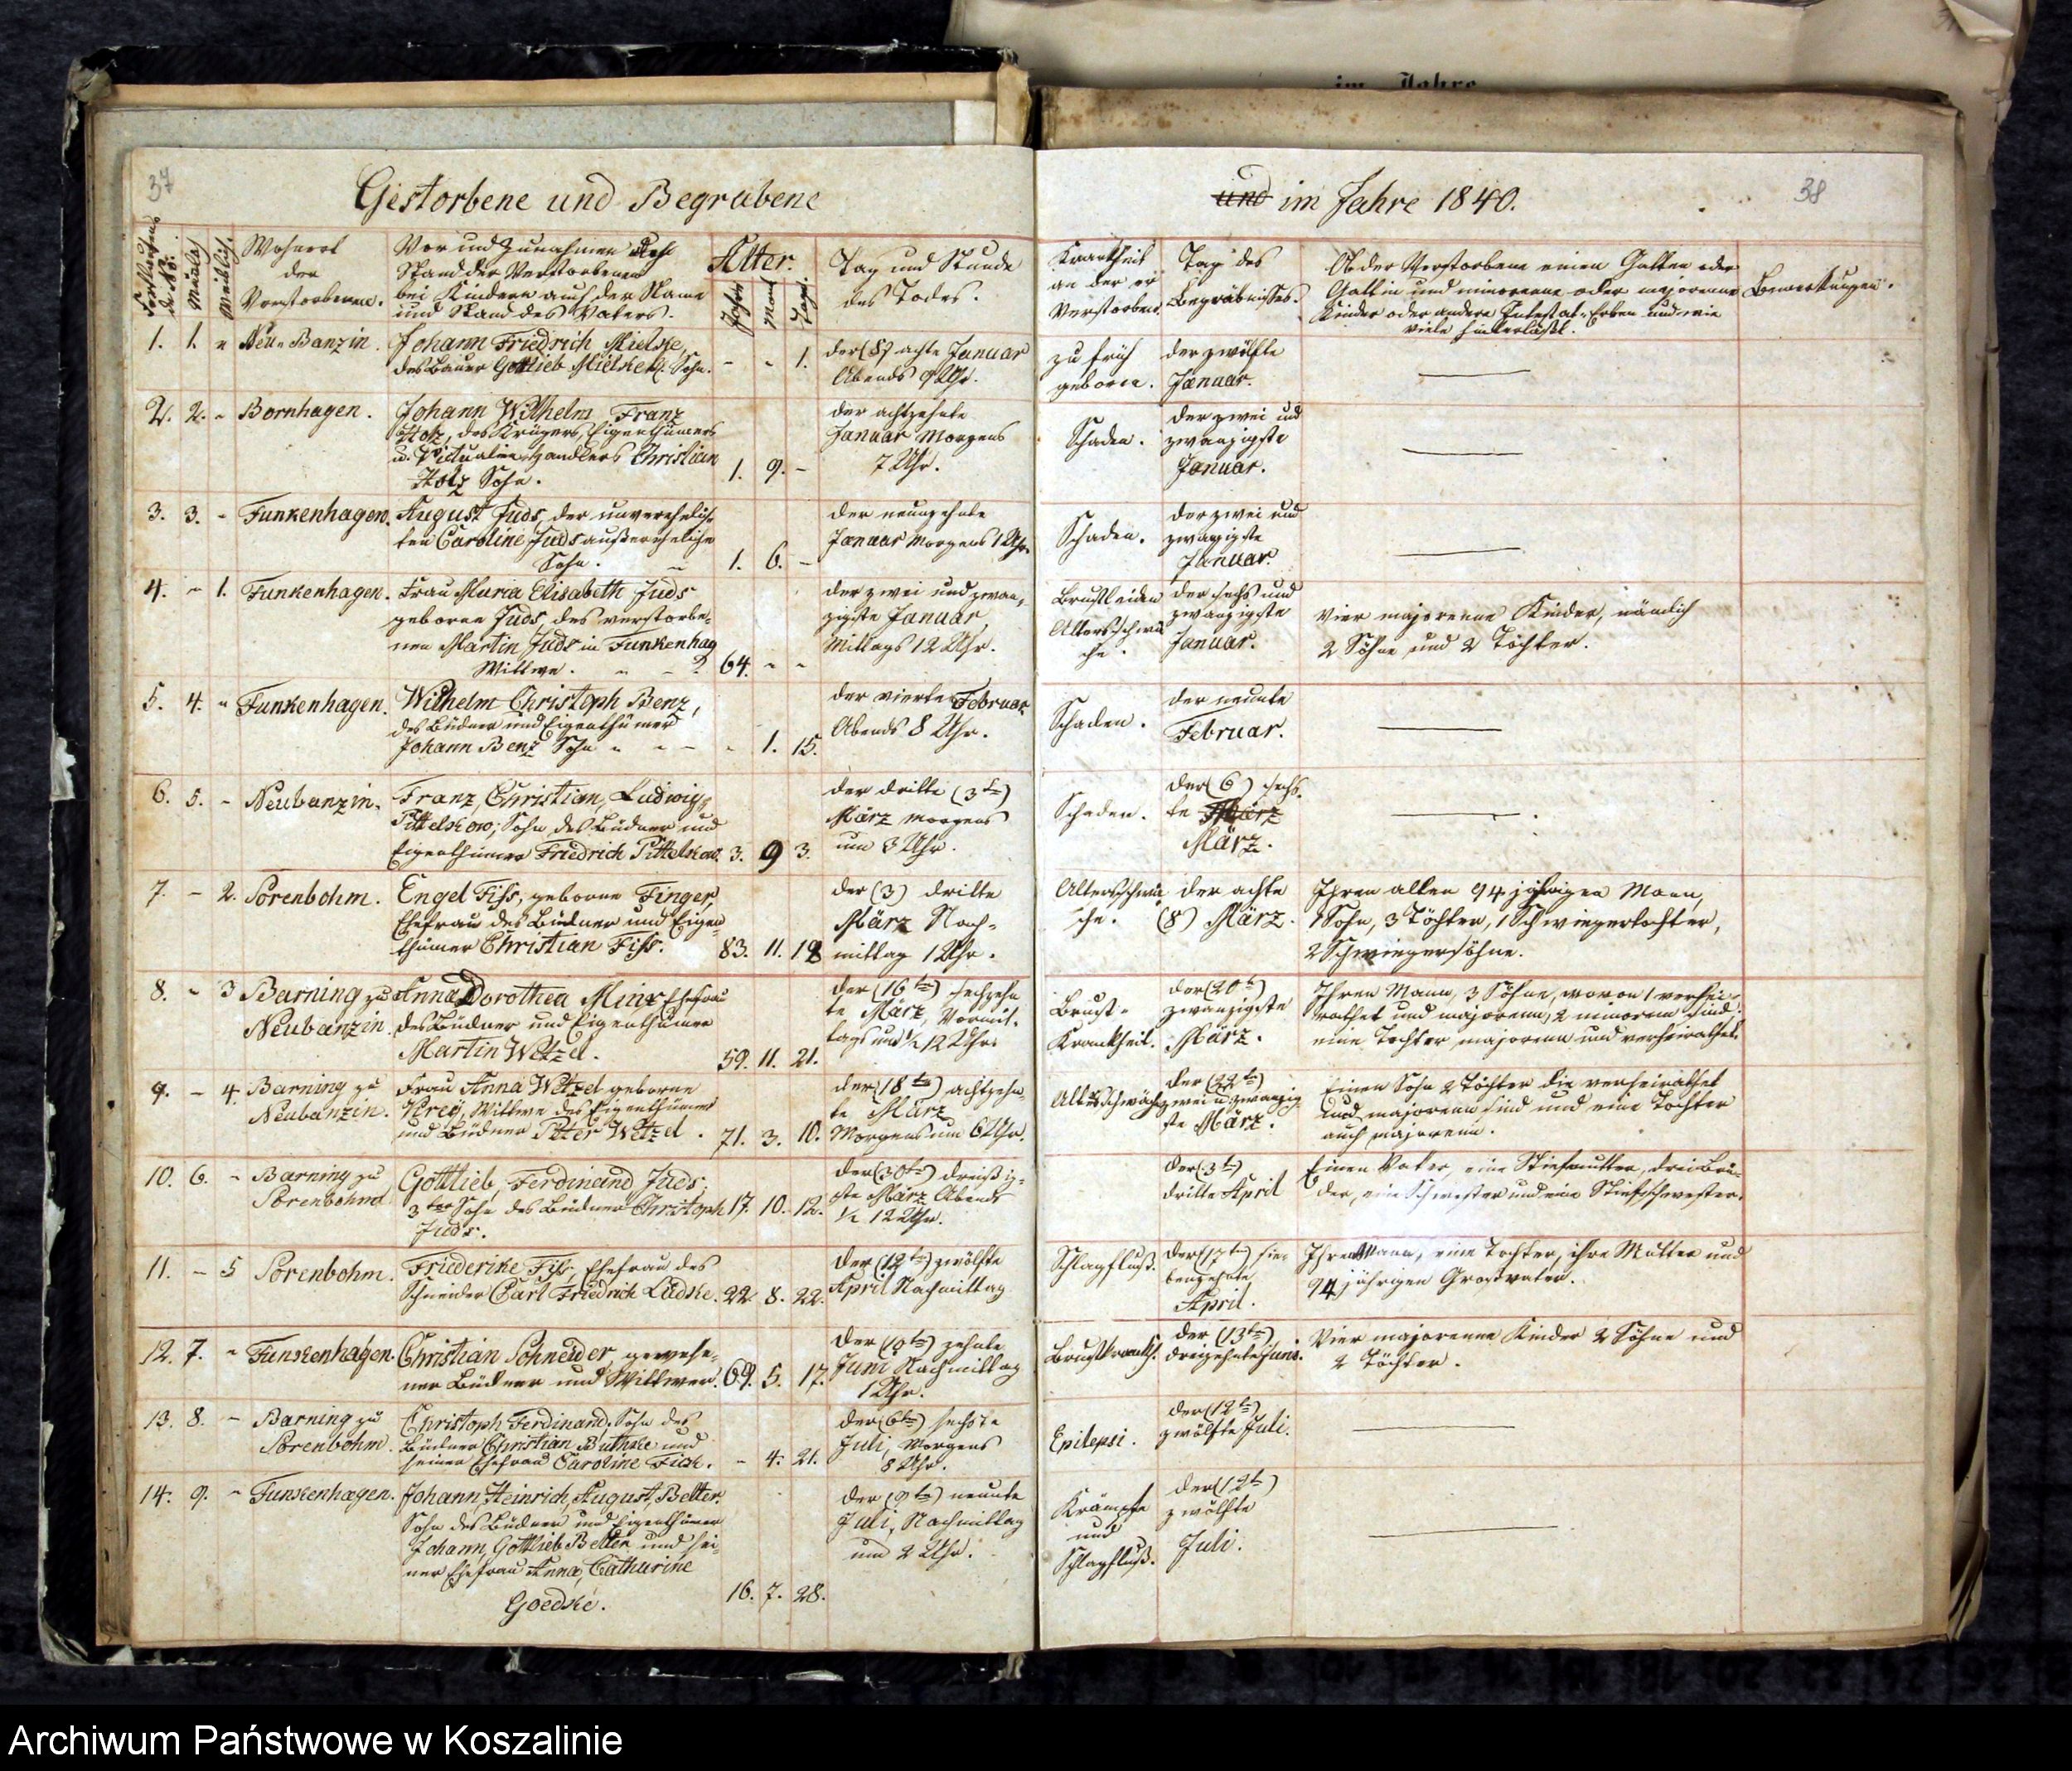 im Jahre
37
Gestorbene und Begrabene
Fortlaufende No.
Männlich
Weiblich.
Wohnort
der
Verstorbenen.
Vor und Zunahmen
Stand der Verstorbenen
bei Kindern auch der Name
und Stand des Vaters.
Alter.
Jahr
Mon
Tage.
Tag und Stunde
des Todes.
1. 1. " Neu-Banzin. Johann Friedrich Mielske, - " 1. der (8) achte Januar
des Bauer Gottlieb Mielske Sohn. Abends 9 Uhr.
2. 2. - Bornhagen. Johann Wilhelm Franz der achtzehnte
Hotz, des Krügers, Eigenthümers Januar Morgens
u. Victualienhändlers Christian 7 Uhr.
Hotz Sohn. 1. 9. -
3. 3. - Funkenhagen. August Juds, der unverehelich- der neunzehnte
ten Caroline Juds außereheliche Januar Morgens 1 Uhr.
Sohn. 1. 6. -
4. " 1. Funkenhagen. Frau Maria Elisabeth Juds der zwei und zwan-
geborne Juds, des verstorbe- zigste Januar,
nen Martin Juds in Funkenhag Mittags 12 Uhr.
Wittwe. 64. " "
5. 4. " Funkenhagen. Wilhelm Christoph Benz, der vierte Februar
des Büdner und Eigenthümer Abends 8 Uhr.
Johann Benz Sohn " 1. 15.
6. 5. - Neubanzin. Franz, Christian, Ludwig, der dritte (3te)
Pittelkow, Sohn des Büdner und März Morgens
Eigenthümer Friedrich Pittelkow. 3. 9 3. um 3 Uhr.
7. - 2. Sorenbohm. Engel Fiss, geborne Finger, der (3) dritte
Ehefrau des Büdner und Eigen- März Nach-
thümer Christian Fiss. 83. 11. 18 mittag 1 Uhr.
8. " 3 Barning zu Anna Dorothea Minx Ehefrau der (16te) sechzehn
Neubanzin. des Büdner und Eigenthümer te März, Vormit-
Martin Wetzel. 59. 11. 21. tags um ½ 12 Uhr.
9. - 4. Barning zu Frau Anna Wetzel geborne der (18te) achtzehn-
Neubanzin. Wittwe des Eigenthümer te März
und Büdner Peter Wetzel. 71. 3. 10. Morgens um 6 Uhr.
10. 6. - Barning zu Gottlieb, Ferdinand Juds, der (30te) dreißig-
Sorenbohm 3ter Sohn des Büdner Christoph 17. 10. 12. ste März Abends
Juds. ½ 12 Uhr.
11. - 5 Sorenbohm. Friederike Fiss, Ehefrau des der (12te) zwölfte
Schneider Carl Friedrich Lüdke. 22. 8. 22. April Nachmittag
12. 7. " Funkenhagen. Christian Schneider, gewese- der (10te) zehnte
ner Büdner und Wittwer. 69. 5. 17. Juni Nachmittag
1 Uhr.
13. 8. - Barning zu Christoph Ferdinand, Sohn des der (6te) sechste
Sorenbohm. Büdner Christian Buthke und Juli, Morgens
seiner Ehefrau Caroline Fick. - 4. 21. 8 Uhr.
14. 9. " Funkenhagen. Johann, Heinrich, August, Better. der (9te) neunte
Sohn des Büdner und Eigenthümer Juli, Nachmittag
Johann, Gottlieb Better und sei- um 2 Uhr.
ner Ehefrau Anna, Catharine
Goedke. 16. 7. 28.
38
und im Jahre 1840.
Krankheit
an der er
Verstorben.
Tag des
Begräbnisses.
Ob der Verstorbene einen Gatten oder
Gattin und minorenne oder majorenne
Kinder oder andere Intestat-Erben und wie
viele hinterläßt.
Bemerkungen.
zu früh der zwölfte
geboren. Januar.
der zwei und
Schaden. zwanzigste
Januar.
der zwei und
Schaden. zwanzigste
Januar.
Brustleiden der sechs und
Altersschwä zwanzigste vier majorenne Kinder, nämlich
che. Januar. 2 Söhne und 2 Töchter.
der neunte
Schaden. Februar.
der (6) sechs-
Schaden. te März
März.
Altersschwä der achte Ihren alten 94 jährigen Mann,
che. (8) März. 1 Sohn, 3 Töchter, 1 Schwiegertochter,
2 Schwiegersöhne.
der (20te) Ihren Mann, 3 Söhne, wovon 1 verhei-
Brust- zwanzigste rathet und majorenn, 2 minorenn sind,
Krankheit. März. eine Tochter majorenn und verheirathet.
der (22te) Einen Sohn 2 Töchter die verheirathet
Altersschwäche zwei u. zwanzig- und majorenn sind und eine Tochter
ste März. auch majorenn.
der (3te) Einen Vater, eine Stiefmutter, drei Brü-
dritte April der, eine Schwester und eine Stiefschwester.
Schlagfluß. der (17te) sie- Ihren Mann, eine Tochter, ihre Mutter und
benzehnte 94 jährigen Großvater.
April.
der (13te) Vier majorenne Kinder 2 Söhne und
Brustkrankh. dreizehnte Juni. 2 Töchter.
der (12te)
Epilepsi. zwölfte Juli.
der (12te)
Krämpfe zwölfte
und Juli.
Schlagfluß.
Archiwum Państwowe w Koszalinie